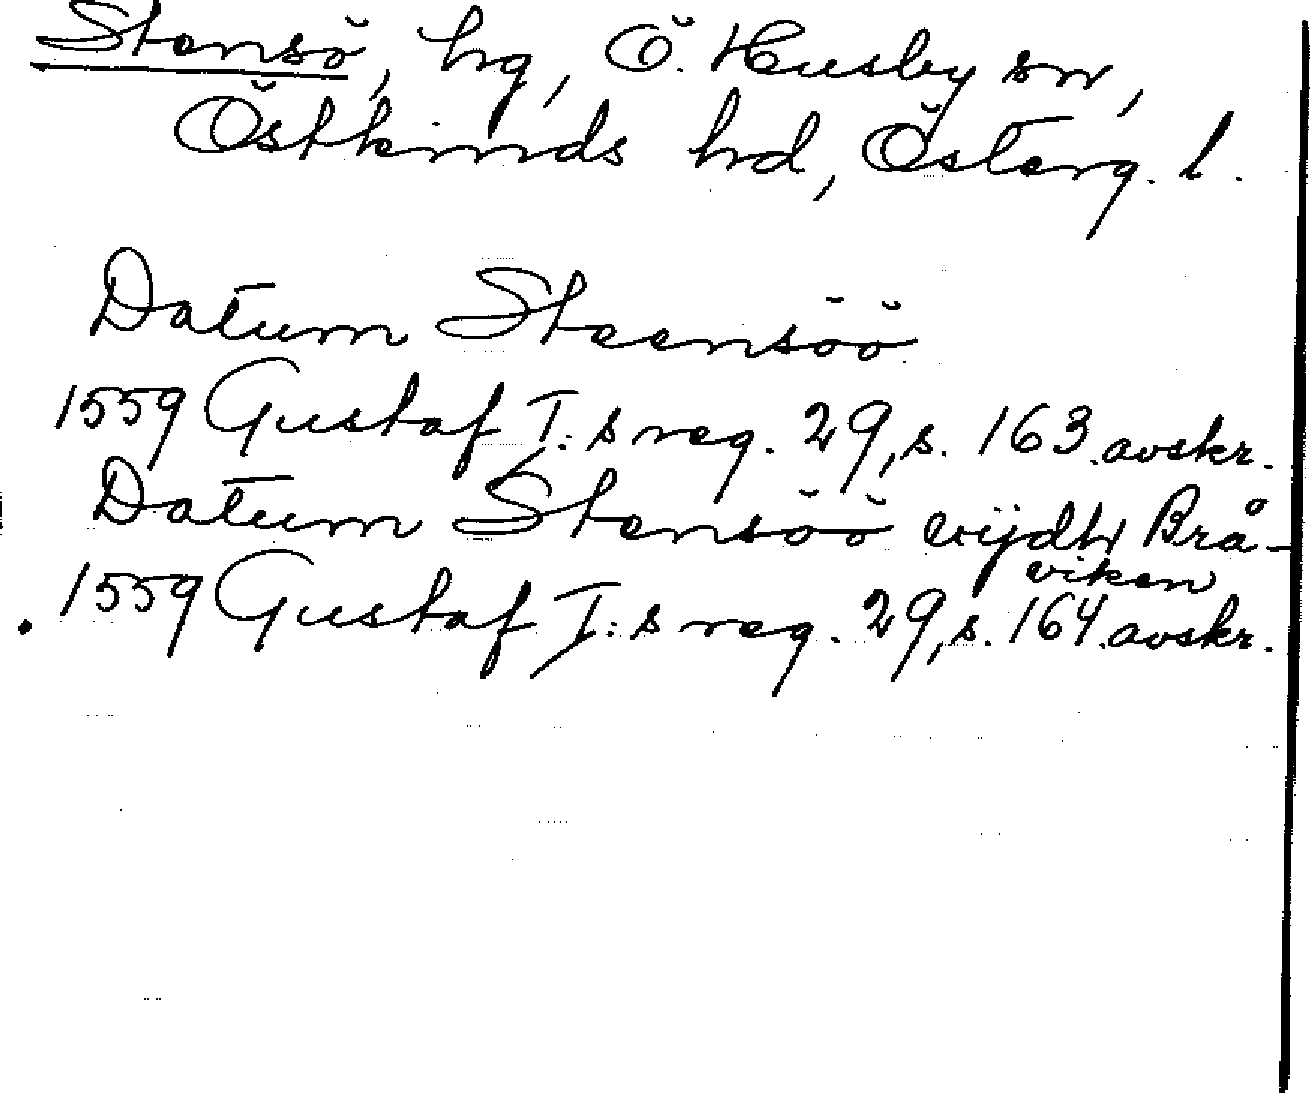 Stensö, hg, Ö. Husby sn,
Östkinds hd, Österg. l.
Datum Steensöö
1559 Gustaf I:s reg. 29, s. 163. avskr.
Datum Stensöö wijdh Brå-
viken
1559 Gustaf I:s reg. 29, s. 164. avskr.